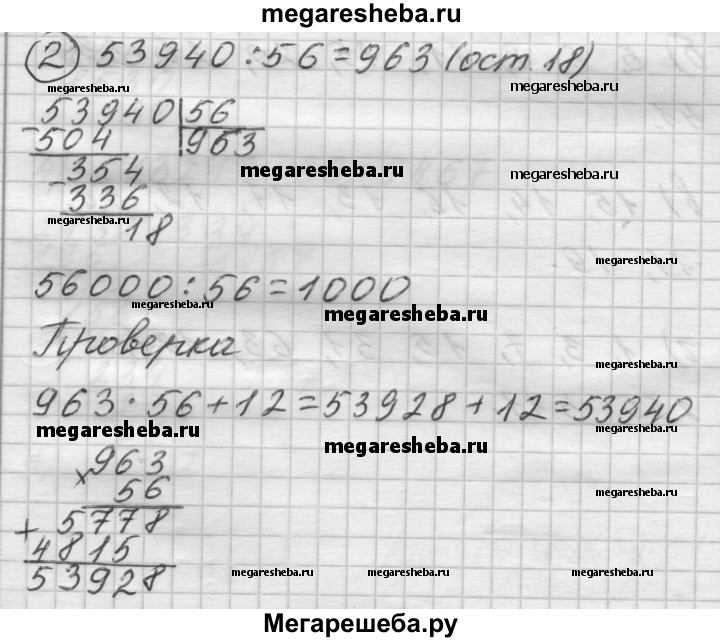 megaresheba.ru
2) 53940 : 56 = 963 (ост. 18)
megaresheba.ru megaresheba.ru
53940 | 56
- 504 963
megaresheba.ru
- 354
336
megaresheba.ru megaresheba.ru
18
56000 : 56 = 1000
megaresheba.ru megaresheba.ru
Проверка
963 · 56 + 12 = 53928 + 12 = 53940
megaresheba.ru megaresheba.ru megaresheba.ru
× 963
56
megaresheba.ru
+ 5778
4815
53928
megaresheba.ru megaresheba.ru megaresheba.ru
Мегарешеба.ру